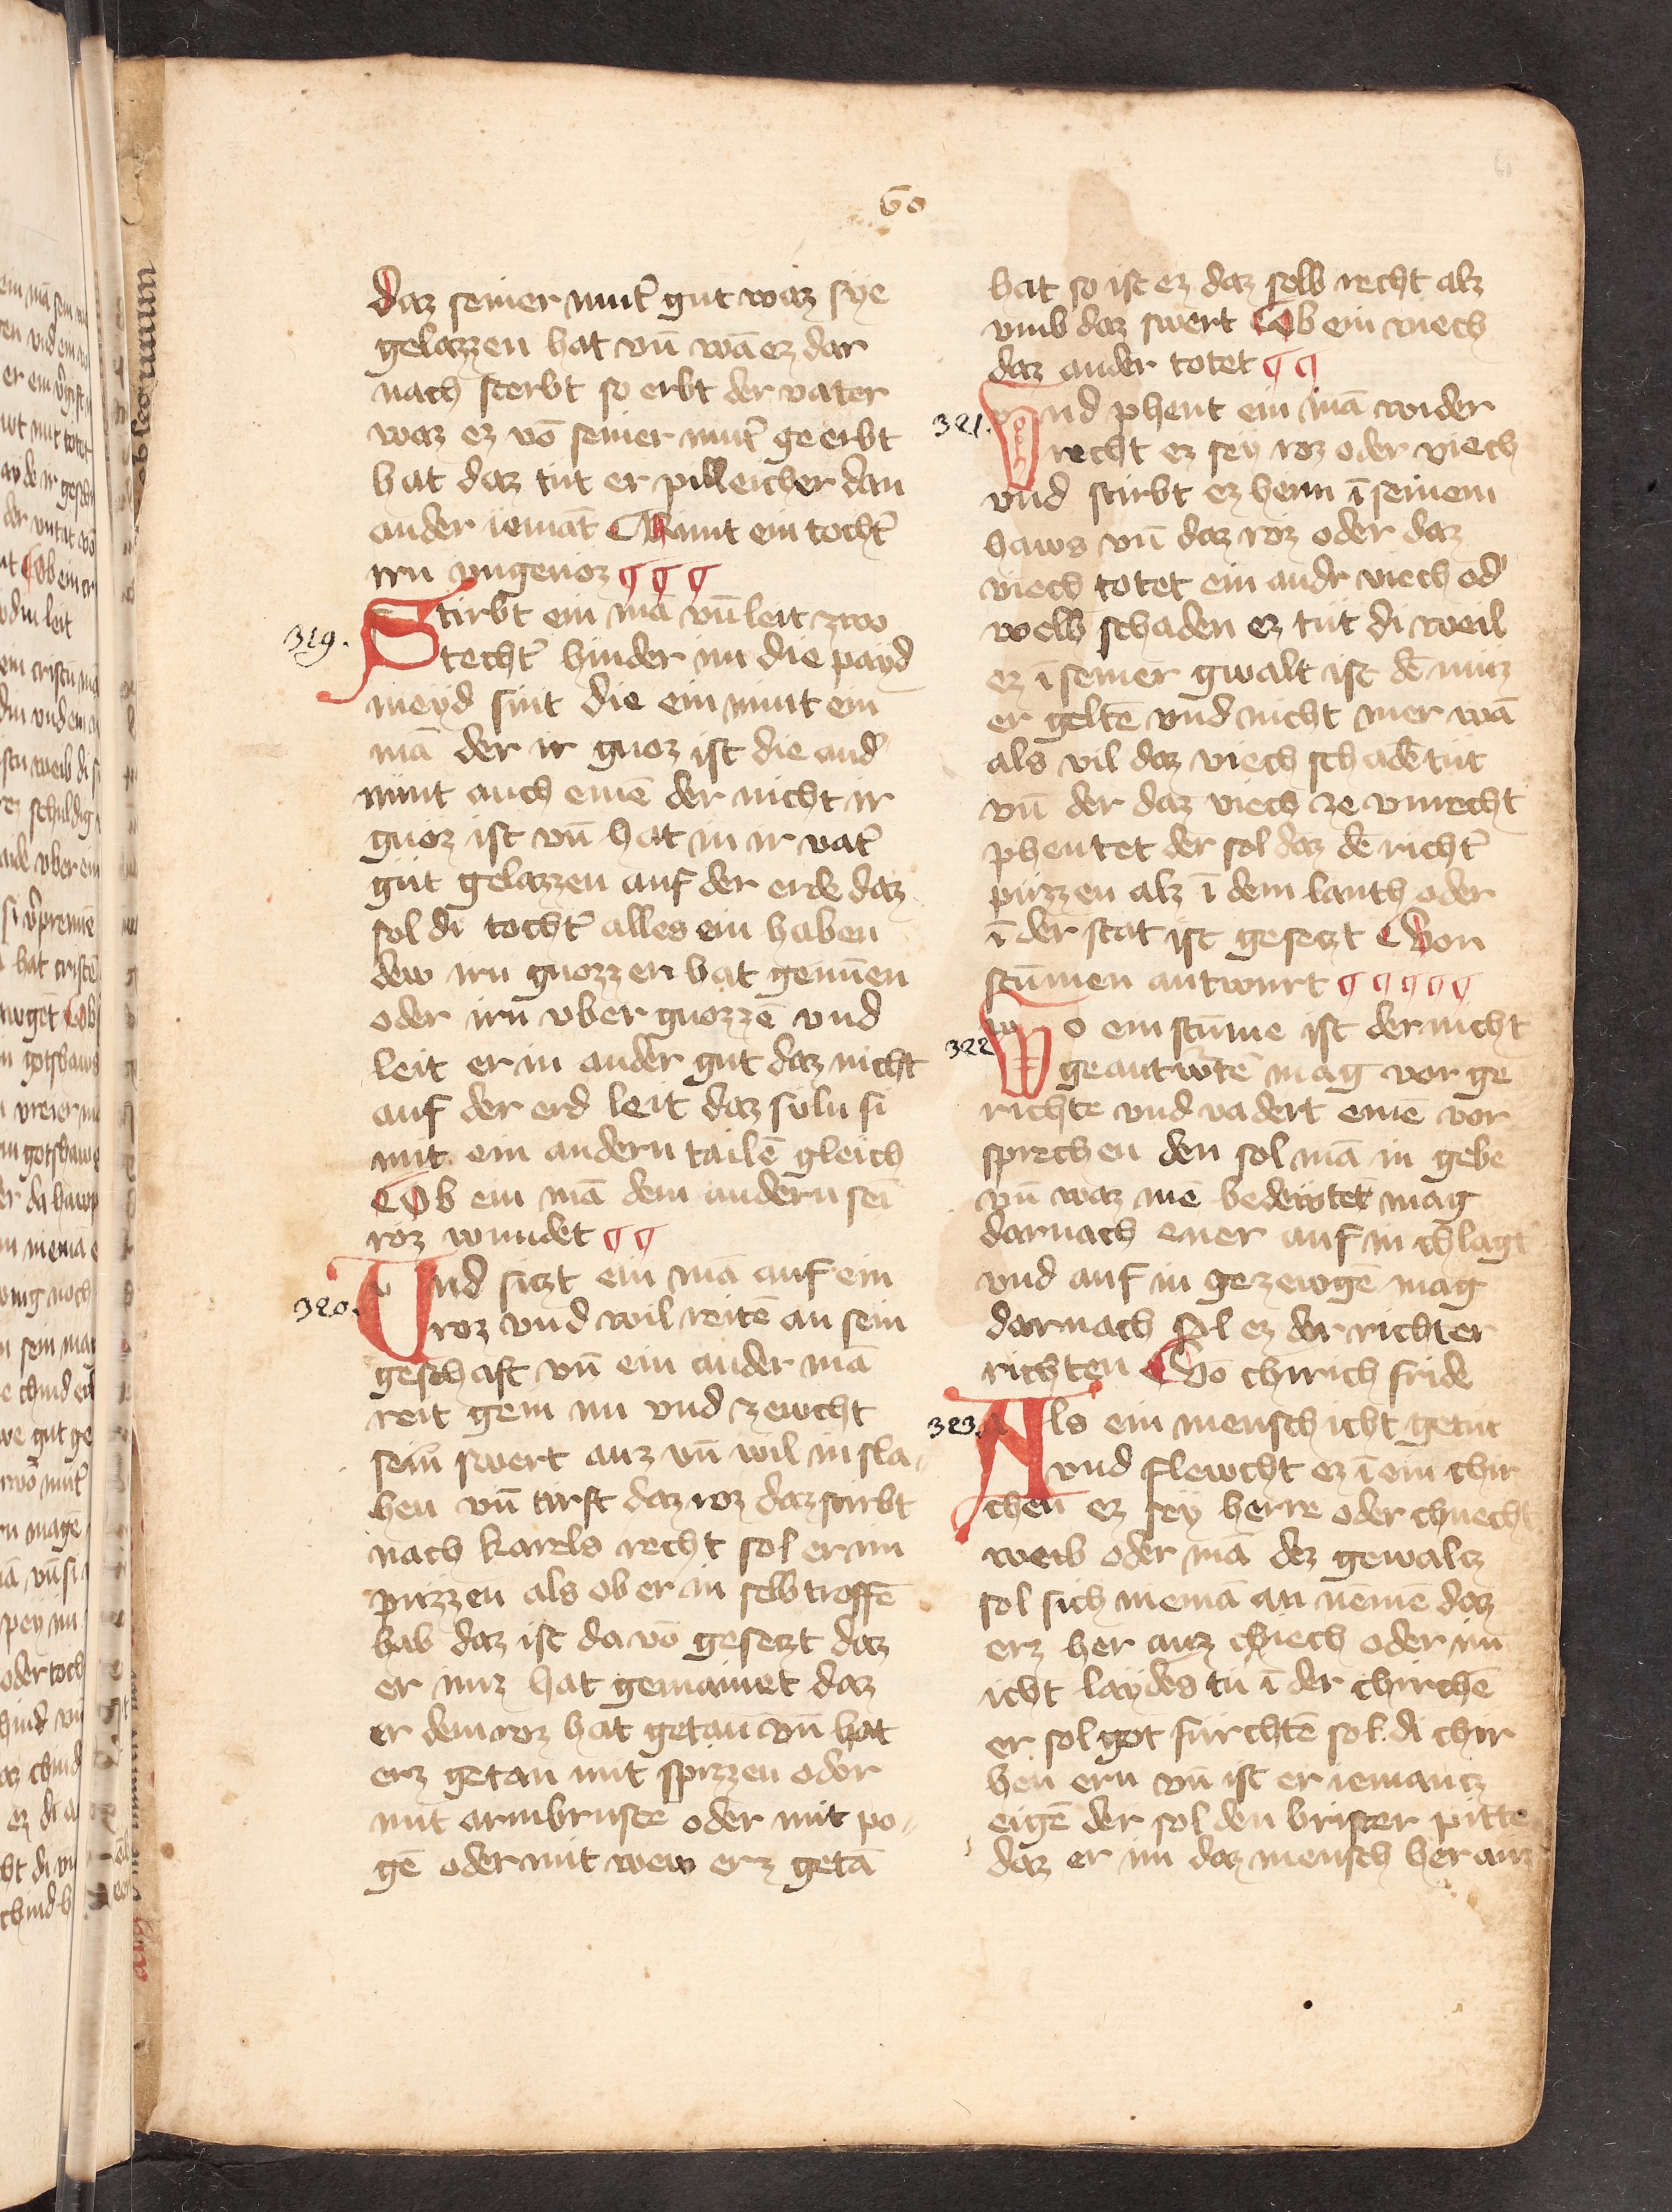 60
daz seiner mut͛ gut waz sye
gelazzen hat vn̄ wā ez dar
nach sterbt so erbt der vater
waz ez vō seiner mut͛ geerbt
hat daz tut er pilleicher dan
ander iemāt ¶ Nimt ein tocht͛
irn vngenoz ¶ ¶ ¶
319.
Stirbt ein mā vn̄ leit zwo
techt͛ hinder im die payd
meyd sint die ein nimt ein
mā der ir gnoz ist die and͛
nimt auch einē der nicht ir
gnoz ist vn̄ hat in ir vat͛
gut gelazzen auf der erde daz
sol di tocht͛ alles ein haben
dew irn gnozzen hat genūen
oder irn vbergnozzē vnd
leit er in ander gut daz nicht
auf der erd leit daz suln si
mit ein andern tailē gleich
¶ Ob ein mā dem andern sei
roz wundet ¶ ¶
320.
Vnd sitzt ein mā auf ein
roz vnd wil reitē an sein
geschaft vn̄ ein ander mā
reit gein im vnd zewcht
sein swert auz vn̄ wil in sla
hen vn̄ trift daz roz daz stirbt
nach karels recht sol er im
puzzen als ob er in selb troffē
hab daz ist da vō gesetzt daz
er imz hat gemainet daz
er dem roz hat getan vn̄ hat
erz getan mit spizzen oder
mit armbruste oder mit po
gē oder mit wew erz getā
hat so ist ez daz selb recht alz
vmb daz swert ¶ Ob ein viech
daz ander totet ¶ ¶
321.
Vnd phent ein mā wider
recht ez sey roz oder viech
vnd stirbt ez heim ī seinem
haws vn̄ daz roz oder daz
viech totet ein andr viech od͛
welh schaden ez tut di weil
ez ī seiner gwalt ist dē muz
er geltē vnd nicht mer wā
als vil daz viech schadē tut
vn̄ der daz viech ze vnrecht
phentet der sol daz dē richt͛
puzzen alz ī dem lanth oder
ī der stat ist gesetzt ¶ Von
stūmen antwurt ¶ ¶ ¶ ¶ ¶
322
Wo ein stūme ist der nicht
geantwtē mag vor ge
richte vnd vadert einē vor
sprechen den sol mā in gebe
vn̄ waz mē bedewtet mag
darnach ener auf in chlagt
vnd auf in gezewgē mag
darnach sol ez der richter
richten ¶ Vō chirich fride
323.
Als ein mensch icht getut
vnd flewcht ez ī ein chir
chen ez sey herre oder chnecht
weib oder mā dez gewaltz
sol sich niemā an nēmē daz
erz her auz ziech oder im
icht laydes tu ī der chirchē
er sol got furchtē sol di chir
hen ern vn̄ ist er iemantz
eigē der sol den brister pitte
daz er im daz mensch her auz